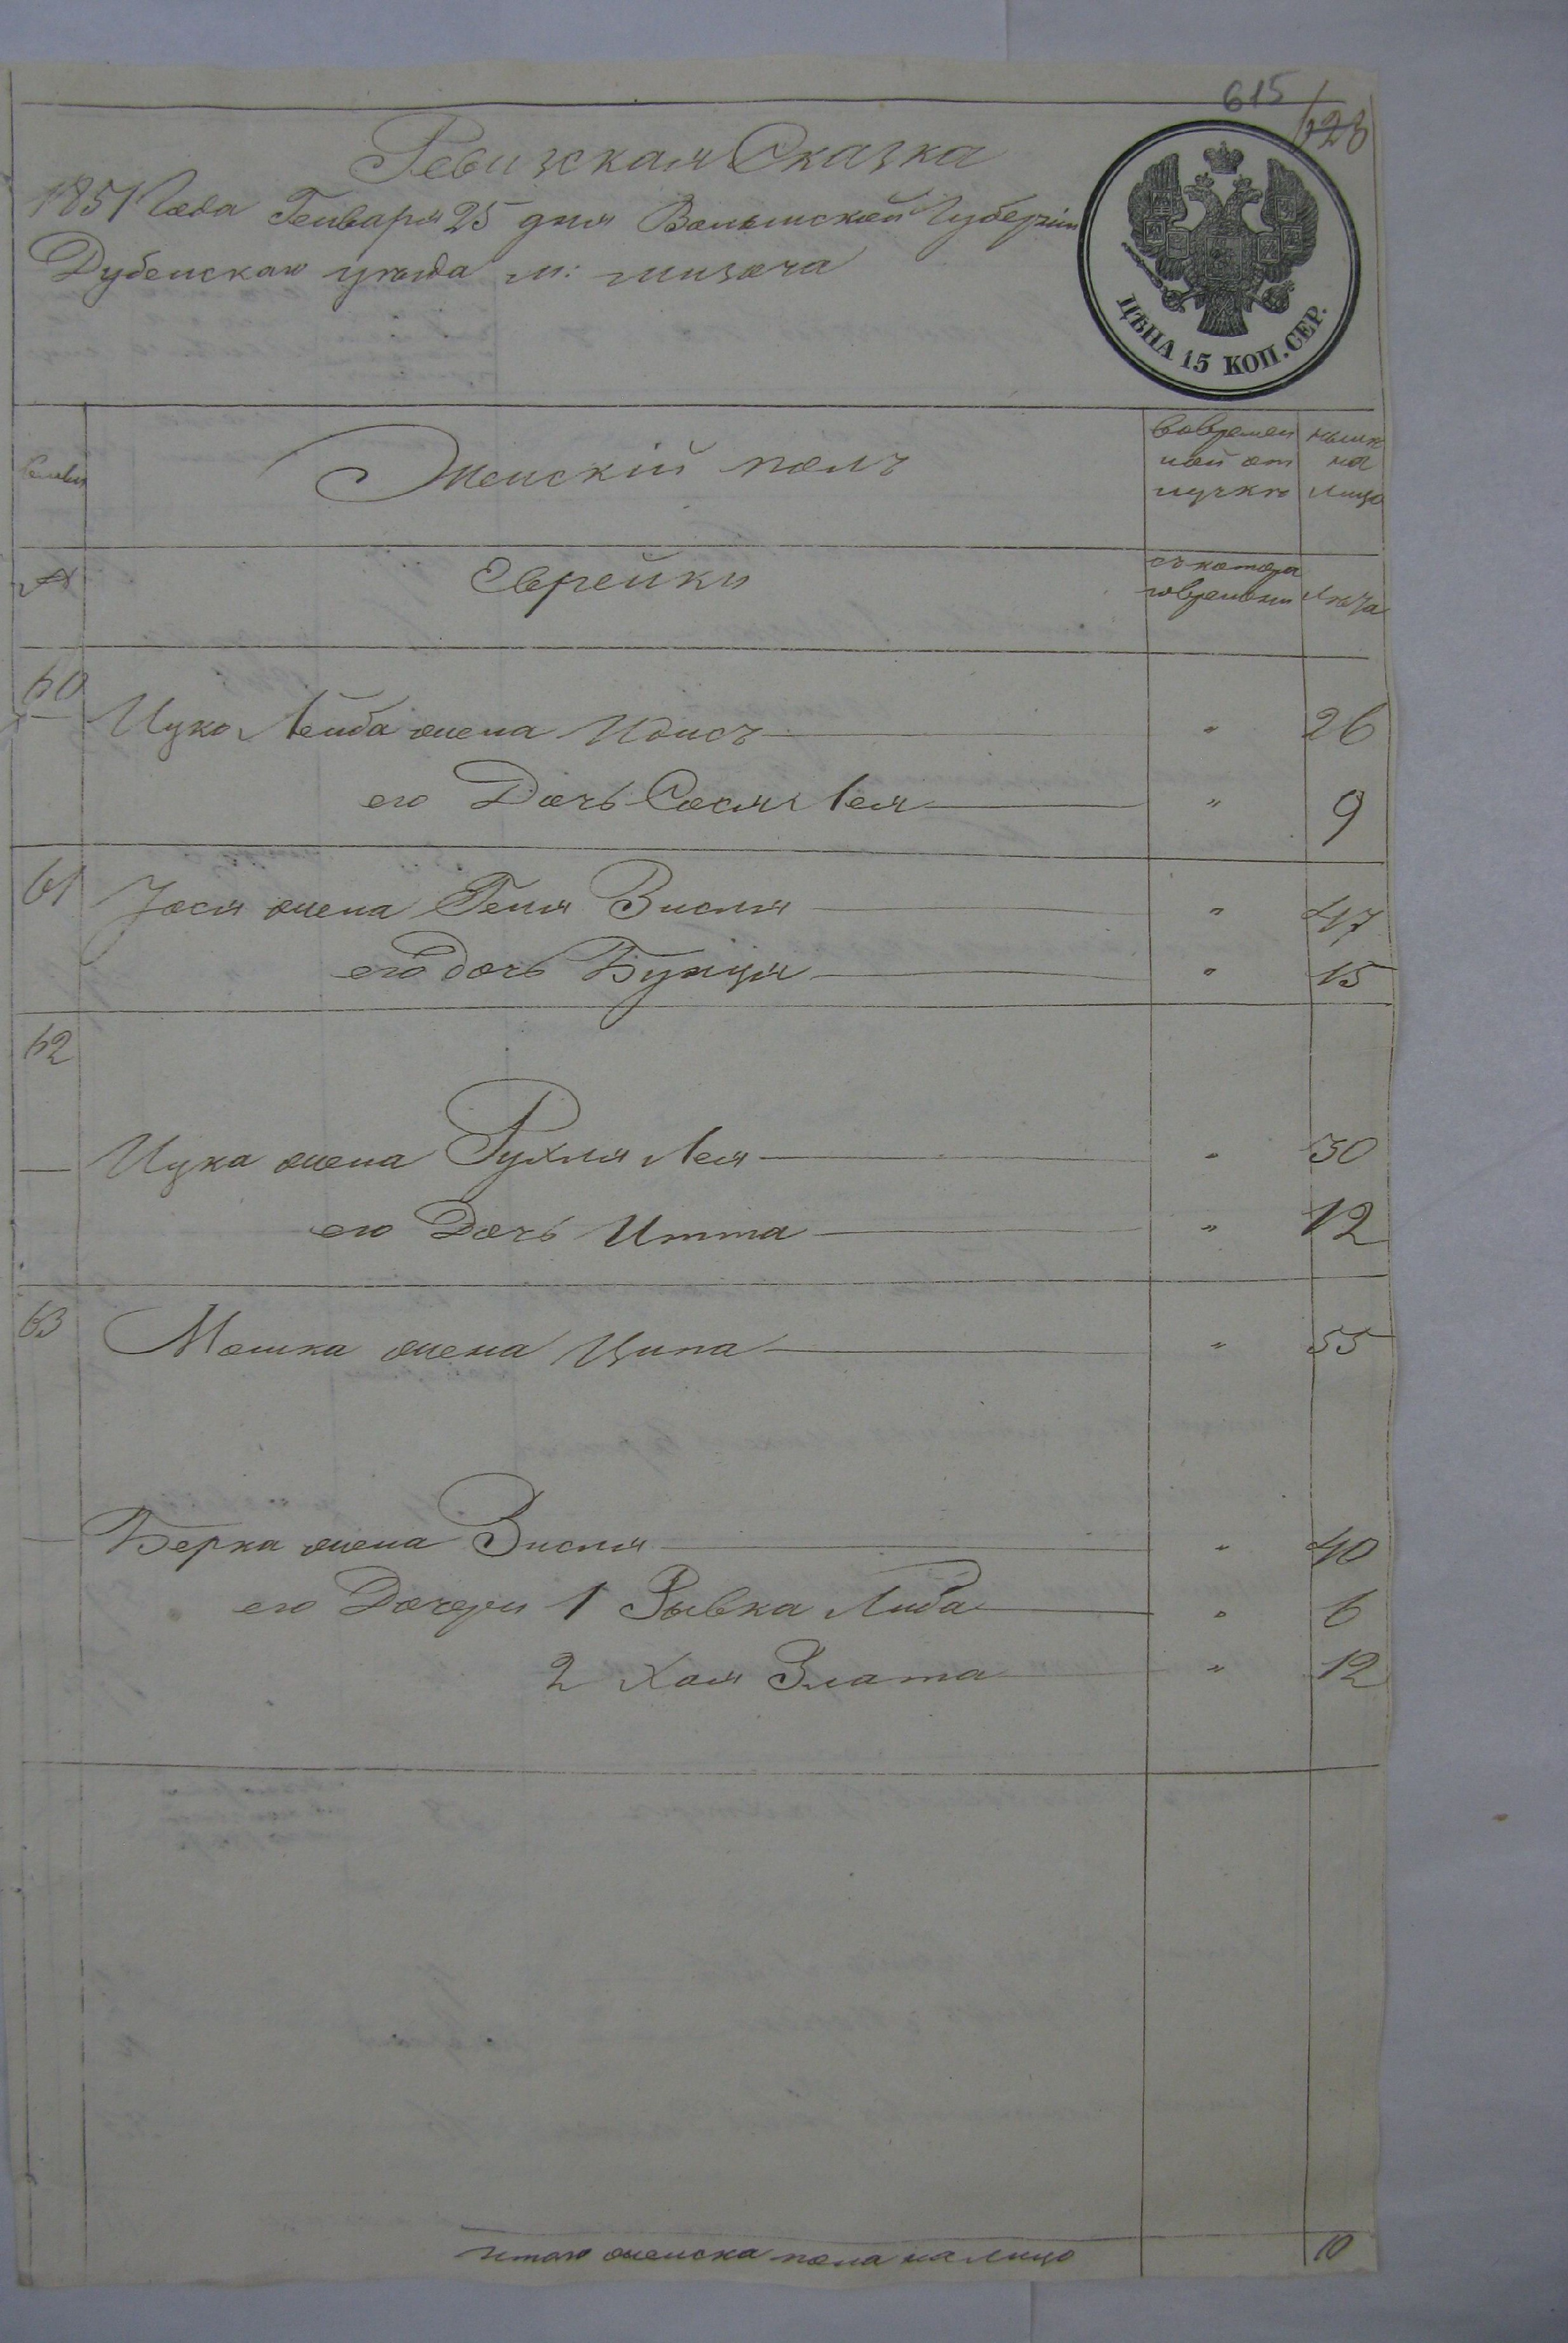 615
128
Ревизская Сказка
1851 Года Генваря 25 дня Волынской Губерніи
Дубенскаго уѣзда м: мизоча
ЦѢНА 15 КОП. СЕР.
Семьи
Женскій полъ
Вовремен
ной от
лучкѣ
ныне
на
лицо
№
Еврейки
съ котора
говремени
Лѣта
60
Ицко Лейба жена Идисъ " 26
его Дочь Сося Лея " 9
61
Іося жена Геня Висля " 47
его дочь Бунця " 15
62
Ицка жена Рухля Лея " 30
его Дочь Итта " 12
63
Мошка жена Ципа " 55
Берка жена Зисля " 40
его Дочери 1 Рывка Либа " 6
2 Хая Злата " 12
итого женска пола на лицо 10